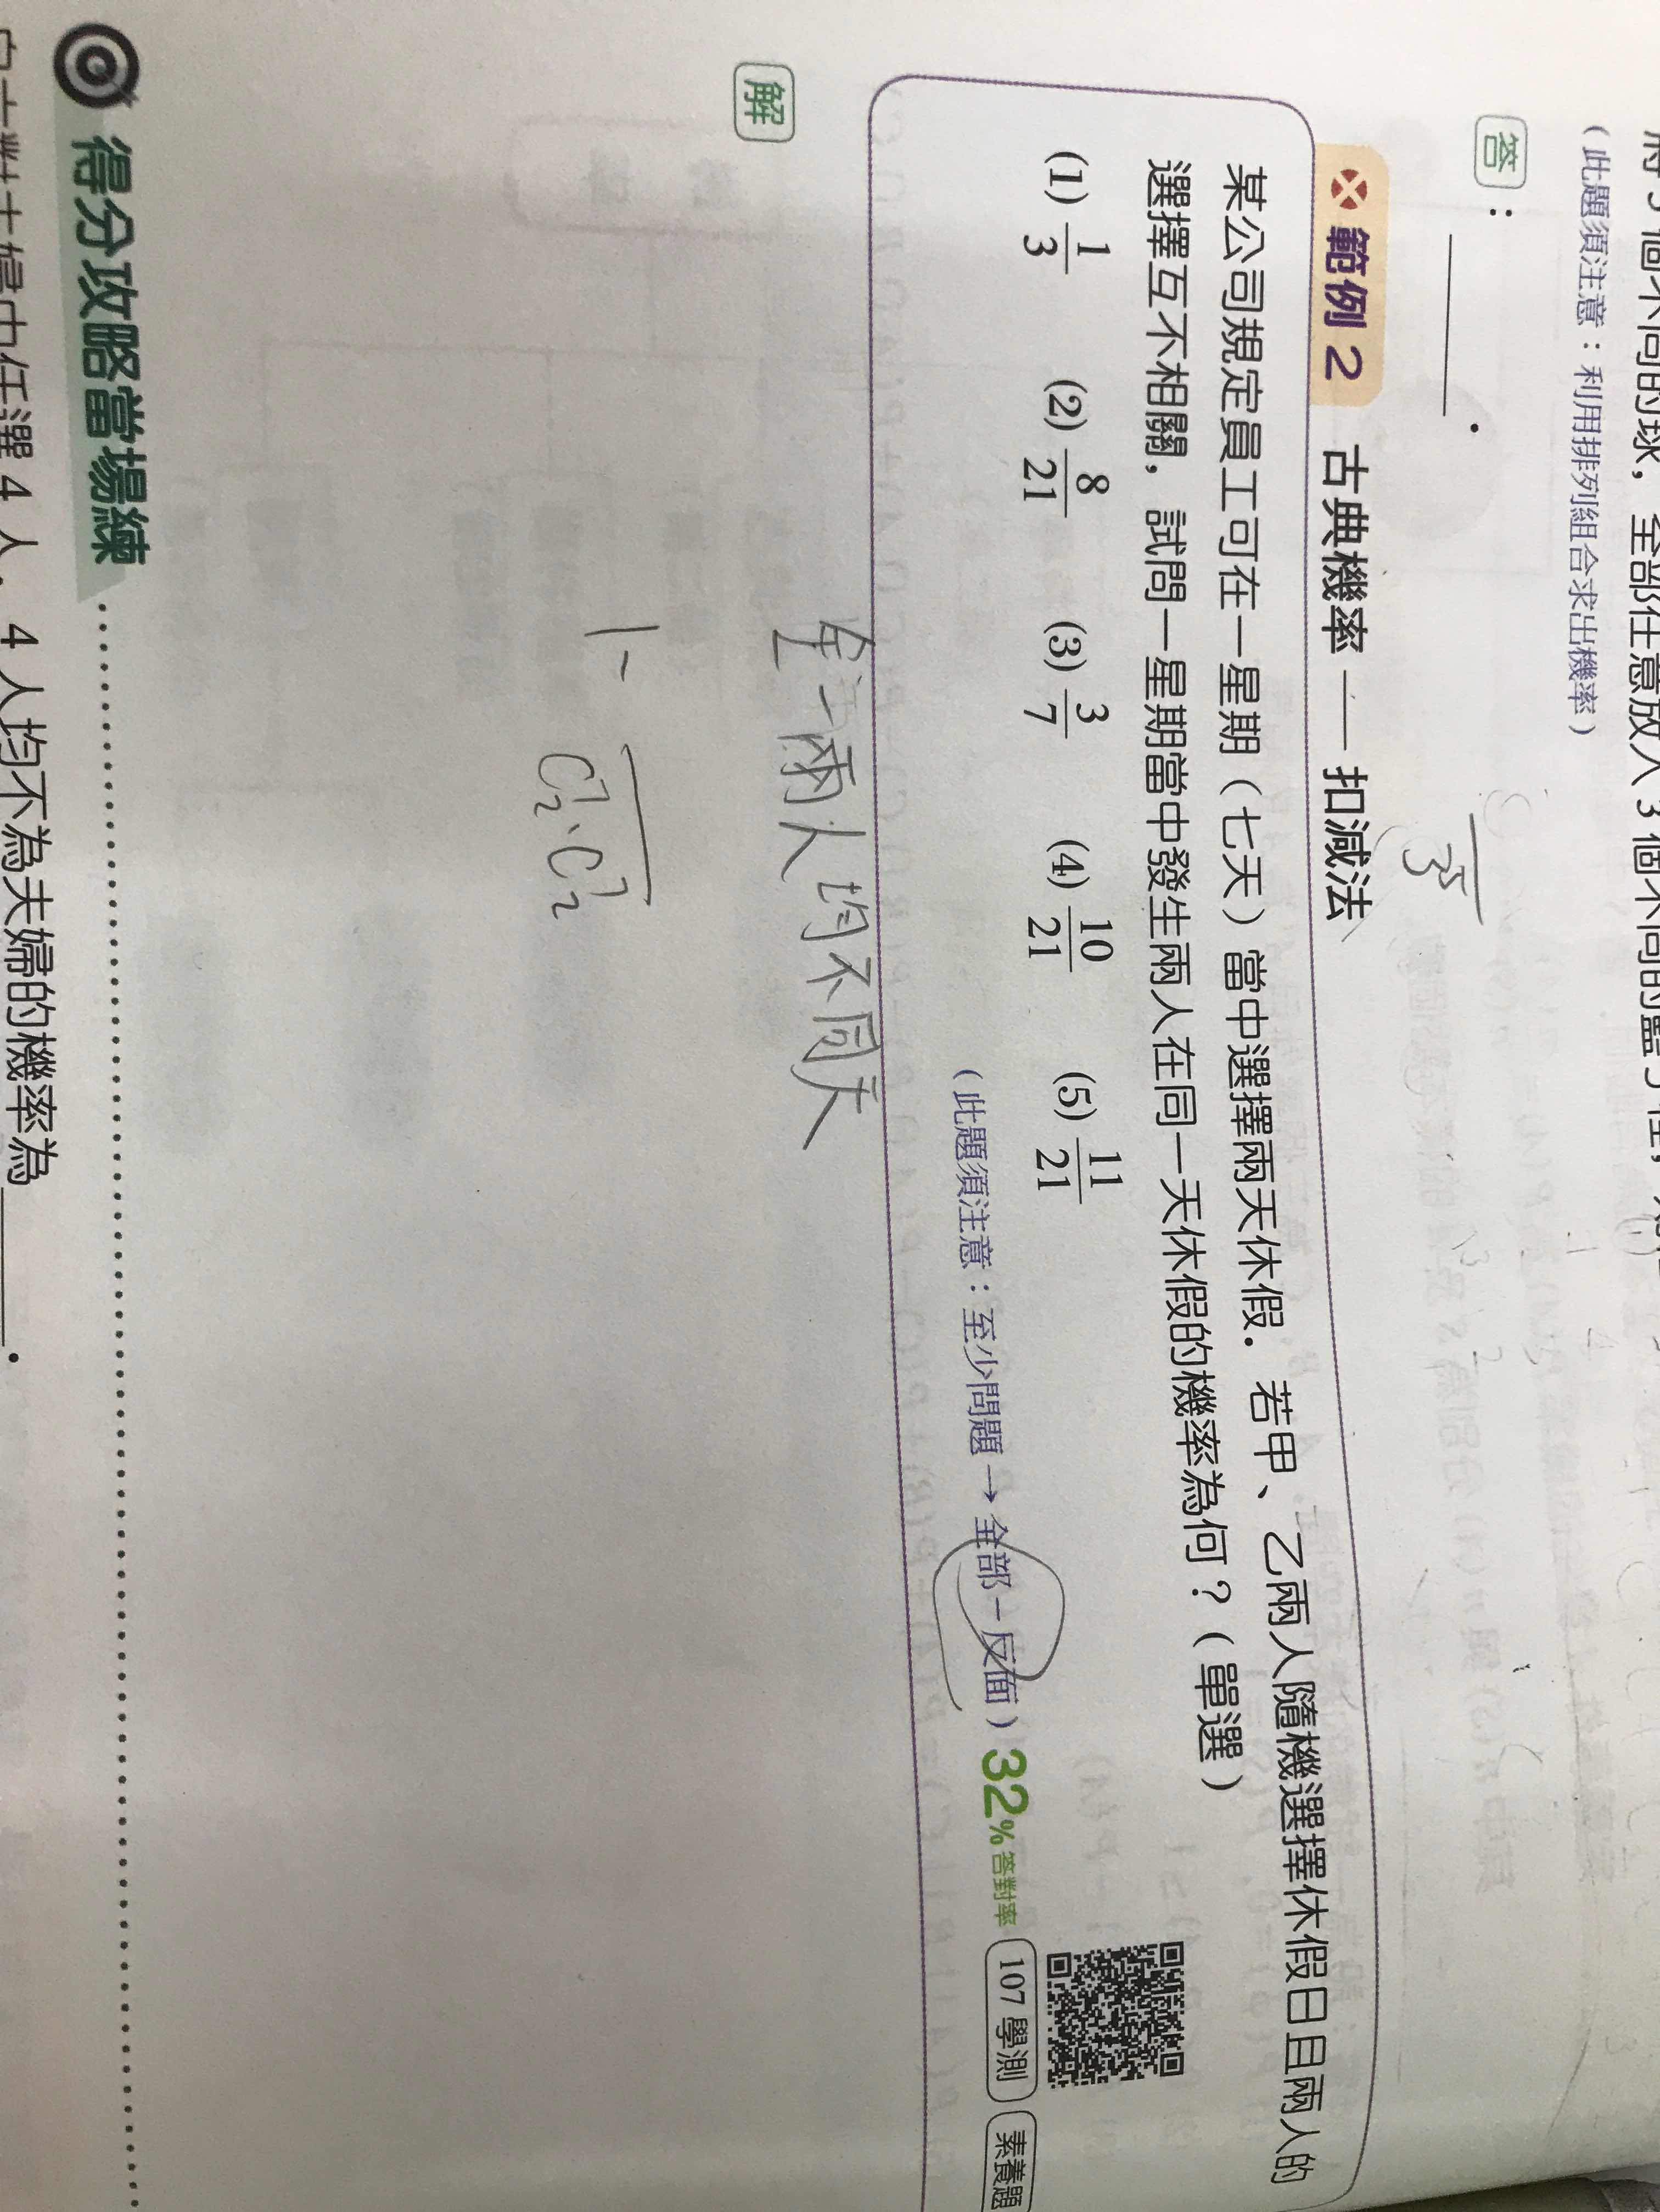 將5個不同的球，全部任意放入3個不同的
（此題須注意：利用排列組合求出機率）
答：＿＿＿．
3⁵
範例 2 古典機率——扣減法
某公司規定員工可在一星期（七天）當中選擇兩天休假．若甲、乙兩人隨機選擇休假日且兩人的
選擇互不相關，試問一星期當中發生兩人在同一天休假的機率為何？（單選）
(1) 1/3 (2) 8/21 (3) 3/7 (4) 10/21 (5) 11/21
（此題須注意：至少問題→全部－反面） 32%答對率 107 學測 素養題
解
全－兩人均不同天
1-
C⁷₂·C⁷₂
得分攻略當場練
對夫婦中任選 4 人，4 人均不為夫婦的機率為＿＿＿．